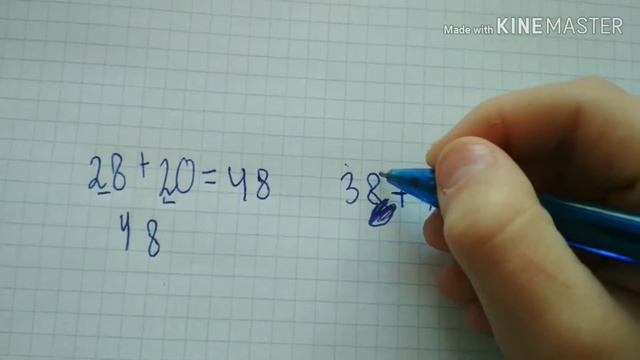 Made with KINEMASTER
28 + 20 = 48
38 +
4 8